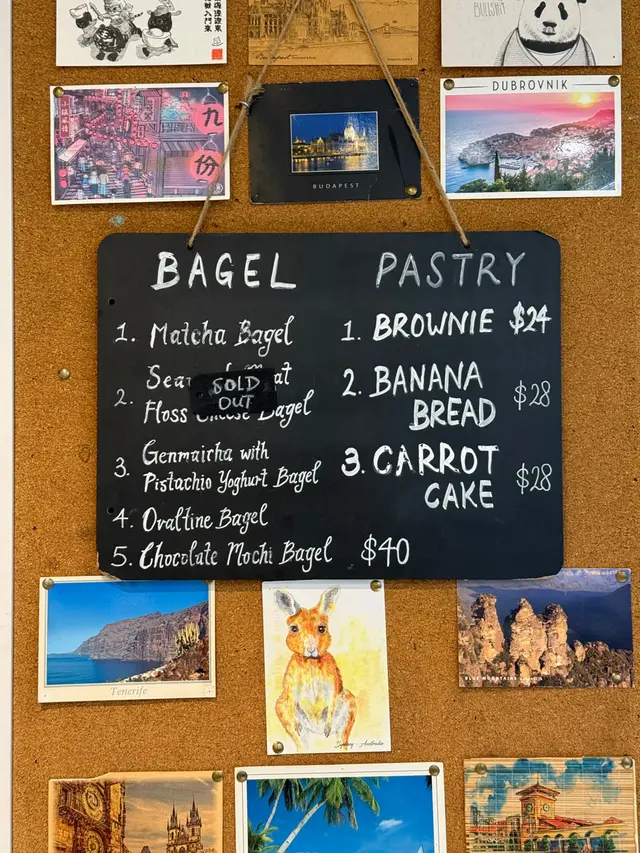 BULLSHIT
DUBROVNIK
九
份
BUDAPEST
BAGEL
1. Matcha Bagel
2.
SOLD
OUT
Floss Cheese Bagel
3. Genmaicha with
Pistachio Yoghurt Bagel
4. Ovaltine Bagel
5. Chocolate Mochi Bagel $40
PASTRY
1. BROWNIE $24
2. BANANA
BREAD $28
3. CARROT
CAKE $28
Tenerife
Sydney - Australia
BLUE MOUNTAINS